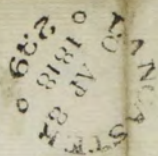 LANCASTER
AP
1818
239